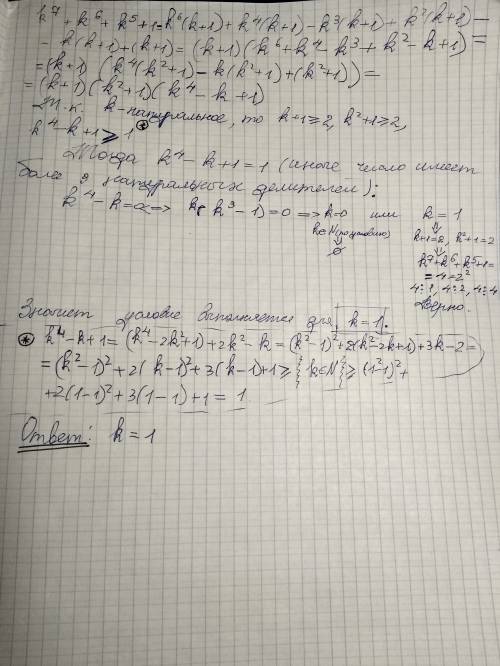 k⁷ + k⁶ + k⁵ + 1 = k⁶(k+1) + k⁴(k+1) - k³(k+1) + k²(k+1) -
- k(k+1) + (k+1) = (k+1)(k⁶ + k⁴ - k³ + k² - k + 1) =
= (k+1)(k⁴(k²+1) - k(k²+1) + (k²+1)) =
= (k+1)(k²+1)(k⁴ - k + 1)
Т.к. k - натуральное, то k+1 ≥ 2, k²+1 ≥ 2,
k⁴ - k + 1 ≥ 1 *
Тогда k⁴ - k + 1 = 1 (иначе число имеет
более натуральных делителей):
k⁴ - k = 0 => k(k³ - 1) = 0 => k = 0 или k = 1
k∈N (по условию)
⇓
∅
⇓
k+1 = 2, k²+1 = 2
⇓
k⁷ + k⁶ + k⁵ + 1 =
= 4 = 2²
4:1, 4:2, 4:4
Верно.
Значит условие выполняется для k = 1.
* k⁴ - k + 1 = (k⁴ - 2k² + 1) + 2k² - k = (k² - 1)² + 2(k² - 2k + 1) + 3k - 2 =
= (k² - 1)² + 2(k - 1)² + 3(k - 1) + 1 ≥ {k∈N} ≥ (1² - 1)² +
+ 2(1 - 1)² + 3(1 - 1) + 1 = 1
Ответ: k = 1